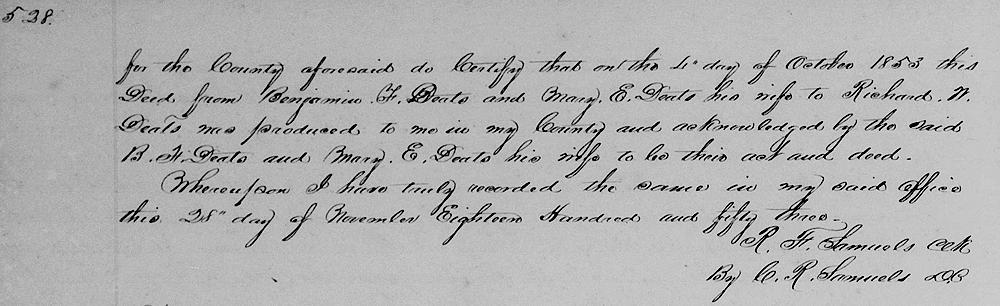 528.
for the County aforesaid do Certify that on the 4" day of October 1853 this
Deed from Benjamin. F. Deats and Mary. E. Deats his wife to Richard. W.
Deats was produced to me in my County and acknowledged by the said
B. F. Deats and Mary. E. Deats his wife to be their act and deed.
Whereupon I have truly recorded the same in my said office
this 28" day of November Eighteen Hundred and fifty three.
R. F. Samuels Clk
By C. R. Samuels D.C